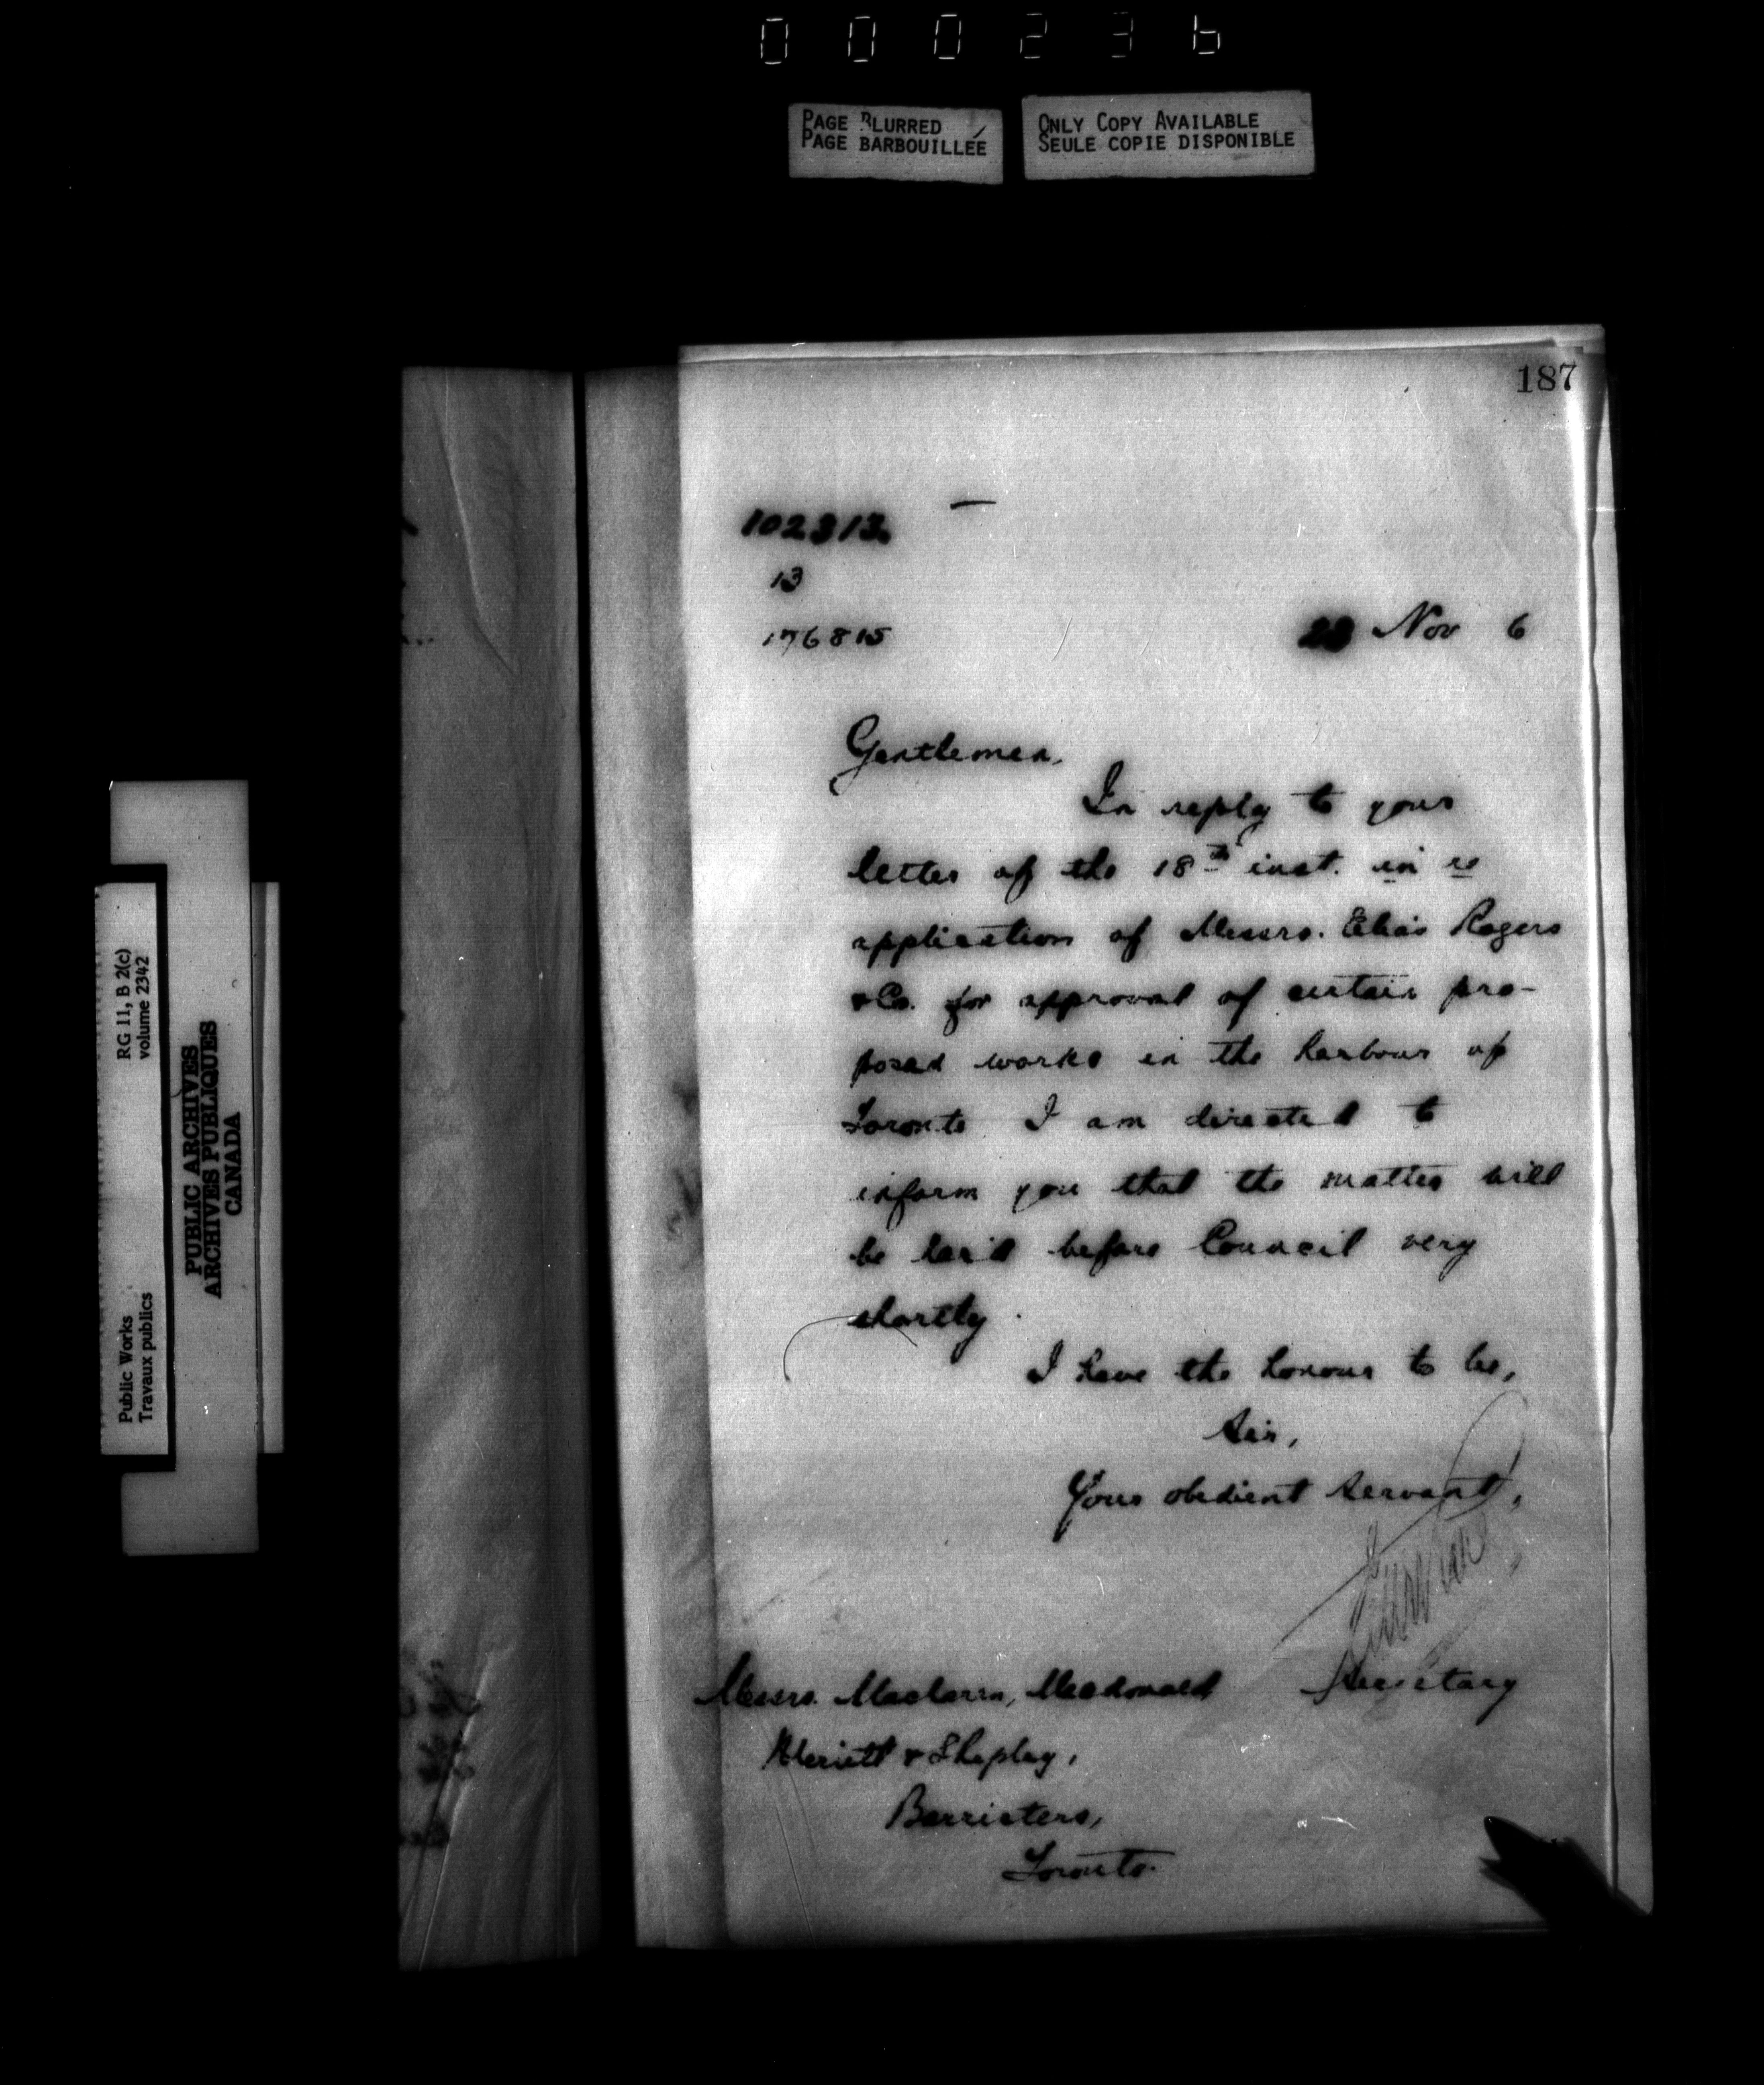 000236
PAGE BLURRED
PAGE BARBOUILLÉE
ONLY COPY AVAILABLE
SEULE COPIE DISPONIBLE
187
102313.
13
176815
23 Nov 6
Gentlemen,
In reply to your
letter of the 18th inst. in re
application of Messrs. Elias Rogers
& Co. for approval of certain pro-
posed works in the harbour of
Toronto I am directed to
inform you that the matter will
be laid before Council very
shortly.
I have the honour to be,
Sir,
Your obedient servant,
Secretary
Messrs. Maclaren, Macdonald
Merritt & Shepley,
Barristers,
Toronto.
RG 11, B 2(c)
volume 2342
Public Works
Travaux publics
PUBLIC ARCHIVES
ARCHIVES PUBLIQUES
CANADA